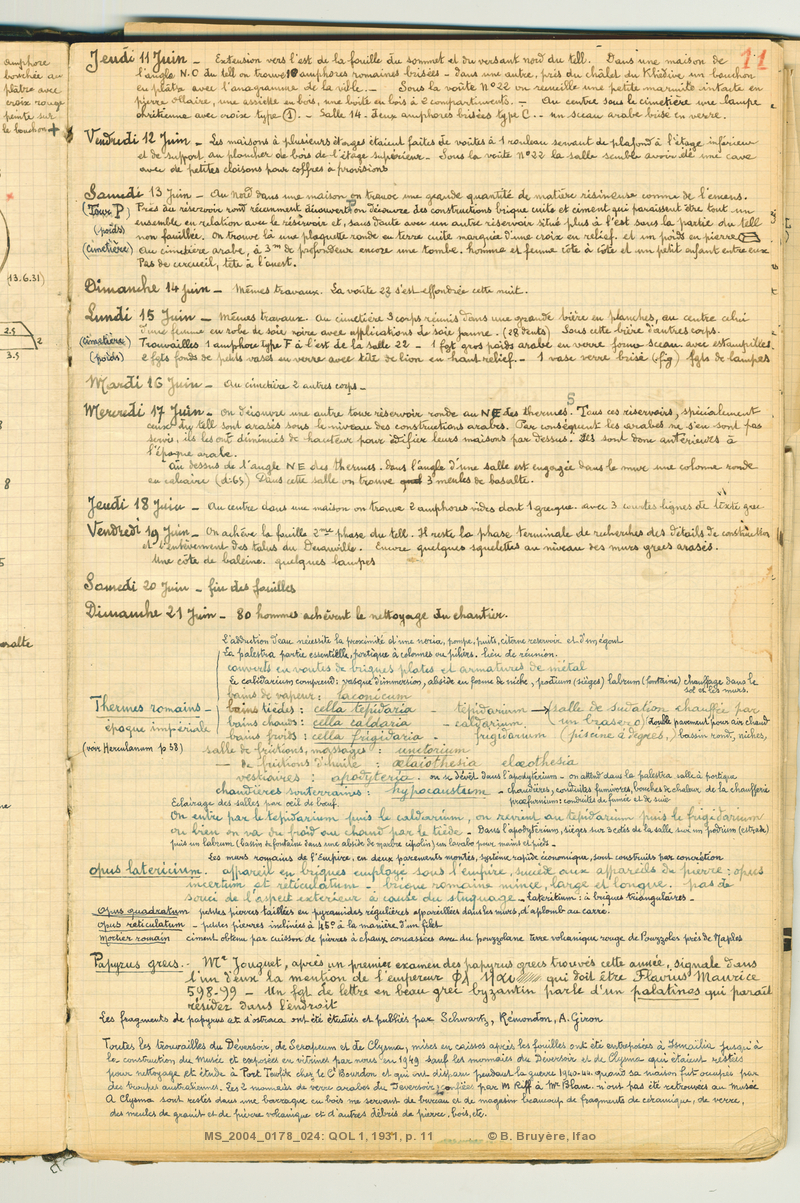 amphore
bouchée au
plâtre avec
croix rouge
peinte sur
le bouchon
(13.6.31)
2.5
2
3.5
8
11
Jeudi 11 Juin - Extension vers l'est de la fouille du sommet et du versant nord du tell. Dans une maison de
l'angle N.O du tell on trouve 10 amphores romaines brisées - dans une autre, près du châlet du Khédive un bouchon
en plâtre avec l'anagramme de la ville. - Sous la voûte N°22 on recueille une petite marmite intacte en
pierre ollaire, une assiette en bois, une boîte en bois à 2 compartiments. - Au centre sous le cimetière une lampe
chrétienne avec croix type (1). - Salle 14. deux amphores brisées type C. - un sceau arabe brisé en verre.
Vendredi 12 Juin - Les maisons à plusieurs étages étaient faites de voûtes à 1 rouleau servant de plafond à l'étage inférieur
et de support au plancher de bois de l'étage supérieur - Sous la voûte N°22 la salle semble avoir été une cave
avec de petites cloisons pour coffres à provisions
Samedi 13 Juin - Au Nord dans une maison on trouve une grande quantité de matière résineuse comme de l'encens.
(Tour P) Près du réservoir rond récemment découvert on découvre des constructions brique cuite et ciment qui paraissent être tout un
ensemble en relation avec le réservoir et, sans doute avec un autre réservoir situé plus à l'est sous la partie du tell
(poids) non fouillée. On trouve là une plaquette ronde en terre cuite marquée d'une croix en relief. et un poids en pierre
(cimetière) Au cimetière arabe, à 3m de profondeur encore une tombe. homme et femme côte à côte et un petit enfant entre eux
Pas de cercueil, tête à l'ouest.
Dimanche 14 juin - Mêmes travaux. La voûte 23 s'est effondrée cette nuit.
Lundi 15 Juin - Mêmes travaux. Au cimetière 3 corps réunis dans une grande bière en planches, au centre celui
d'une femme en robe de soie noire avec applications de soie jaune. (28 dents) Sous cette bière d'autres corps.
(cimetière) Trouvailles 1 amphore type F à l'est de la salle 22 - 1 fgt gros poids arabe en verre forme sceau avec estampilles.
(poids) 2 fgts fonds de petits vases en verre avec tête de lion en haut relief. - 1 vase verre brisé (fig) fgts de lampes
Mardi 16 Juin - Au cimetière 2 autres corps -
Mercredi 17 Juin - On découvre une autre tour réservoir ronde au NE des thermes. Tous ces réservoirs, spécialement
ceux du tell sont arasés sous le niveau des constructions arabes. Par conséquent les arabes ne s'en sont pas
servi, ils les ont diminués de hauteur pour édifier leurs maisons par dessus. Ils sont donc antérieurs à
l'époque arabe.
Au dessus de l'angle NE des thermes. dans l'angle d'une salle est engagée dans le mur une colonne ronde
en calcaire (d:65) Dans cette salle on trouve 3 meules de basalte.
Jeudi 18 Juin - Au centre dans une maison on trouve 2 amphores vides dont 1 grecque. avec 3 courtes lignes de texte grec
Vendredi 19 Juin - On achève la fouille 2me phase du tell. Il reste la phase terminale de recherches des détails de construction
et l'enlèvement des talus du Decauville. Encore quelques squelettes au niveau des murs grecs arasés.
Une côte de baleine. quelques lampes
Samedi 20 Juin - fin des fouilles
Dimanche 21 Juin - 80 hommes achèvent le nettoyage du chantier.
L'adduction d'eau nécessite la proximité d'une noria, pompe, puits, citerne réservoir et d'un égout
La palestra partie essentielle, portique à colonnes ou piliers. lieu de réunion.
couverts en voûtes de briques plates et armatures de métal
Le caldarium comprend: vasque d'immersion, abside en forme de niche, podium (sièges) labrum (fontaine) chauffage dans le
sol et les murs.
bains de vapeur: laconicum
Thermes romains - bains tièdes: cella tepidaria - tepidarium → salle de sudation chauffée par
époque impériale bains chauds: cella caldaria - caldarium. (un brasero) double parement pour air chaud
bains froids: cella frigidaria - frigidarium (piscine à degrés,) bassin rond, niches,
(voir Herculanum p 58) salle de frictions, massages: unctorium
- de frictions d'huile: oelaiothesia elaeothesia
vestiaires: apodyteria. on se dévêt dans l'apodyterium - on attend dans la palestra salle à portique
chaudières souterraines: hypocaustum - chaudières, conduites fumivores, bouches de chaleur de la chaufferie
Eclairage des salles par œil de bœuf. præfurnium: conduites de fumée et de suie
On entre par le tepidarium puis le caldarium, on revient au tepidarium puis le frigidarium
ou bien on va du froid au chaud par le tiède - Dans l'apodyterium, sièges sur 3 côtés de la salle sur un podium (estrade)
puis un labrum (bassin de fontaine dans une abside de marbre cipolin) un lavabo pour mains et pieds -
Les murs romains de l'Empire, en deux parements montés, système rapide économique, sont construits par concrétion
opus latericium. appareil en briques employé sous l'empire, succède aux appareils de pierre: opus
incertum et reticulatum - brique romaine mince, large et longue. pas de
souci de l'aspect extérieur à cause du stuquage - Lateritium: à briques triangulaires -
Opus quadratum petites pierres taillées en pyramides régulières appareillées dans les murs, d'aplomb au carré.
opus reticulatum - petites pierres inclinées à 45° à la manière d'un filet
Mortier romain ciment obtenu par cuisson de pierres à chaux concassées avec du pouzzolane terre volcanique rouge de Pouzzoles près de Naples
Papyrus grecs. - Mr Jouguet, après un premier examen des papyrus grecs trouvés cette année, signale dans
l'un d'eux la mention de l'empereur qui doit être Flavius Maurice
598-99 - Un fgt de lettre en beau grec byzantin parle d'un palatinos qui paraît
résider dans l'endroit
Les fragments de papyrus et d'ostraca ont été étudiés et publiés par Schwartz, Rémondon, A. Giron
Toutes les trouvailles du Déversoir, de Serapeum et de Clysma, mises en caisses après les fouilles ont été entreposées à Ismaïlia jusqu'à
la construction du Musée et exposées en vitrines par nous en 1949 sauf les monnaies du Déversoir et de Clysma qui étaient restées
pour nettoyage et étude à Port Tewfik chez le Ct Bourdon et qui ont disparu pendant la guerre 1940-44. quand sa maison fut occupée par
des troupes australiennes. Les 2 monnaies de verre arabes du Déversoir confiées par M. Riff à Mr Blanc n'ont pas été retrouvées au Musée
A Clysma sont restés dans une barraque en bois me servant de bureau et de magasin beaucoup de fragments de céramique, de verre,
des meules de granit et de pierre volcanique et d'autres débris de pierre, bois, etc.
MS_2004_0178_024: QOL 1, 1931, p. 11 © B. Bruyère, Ifao